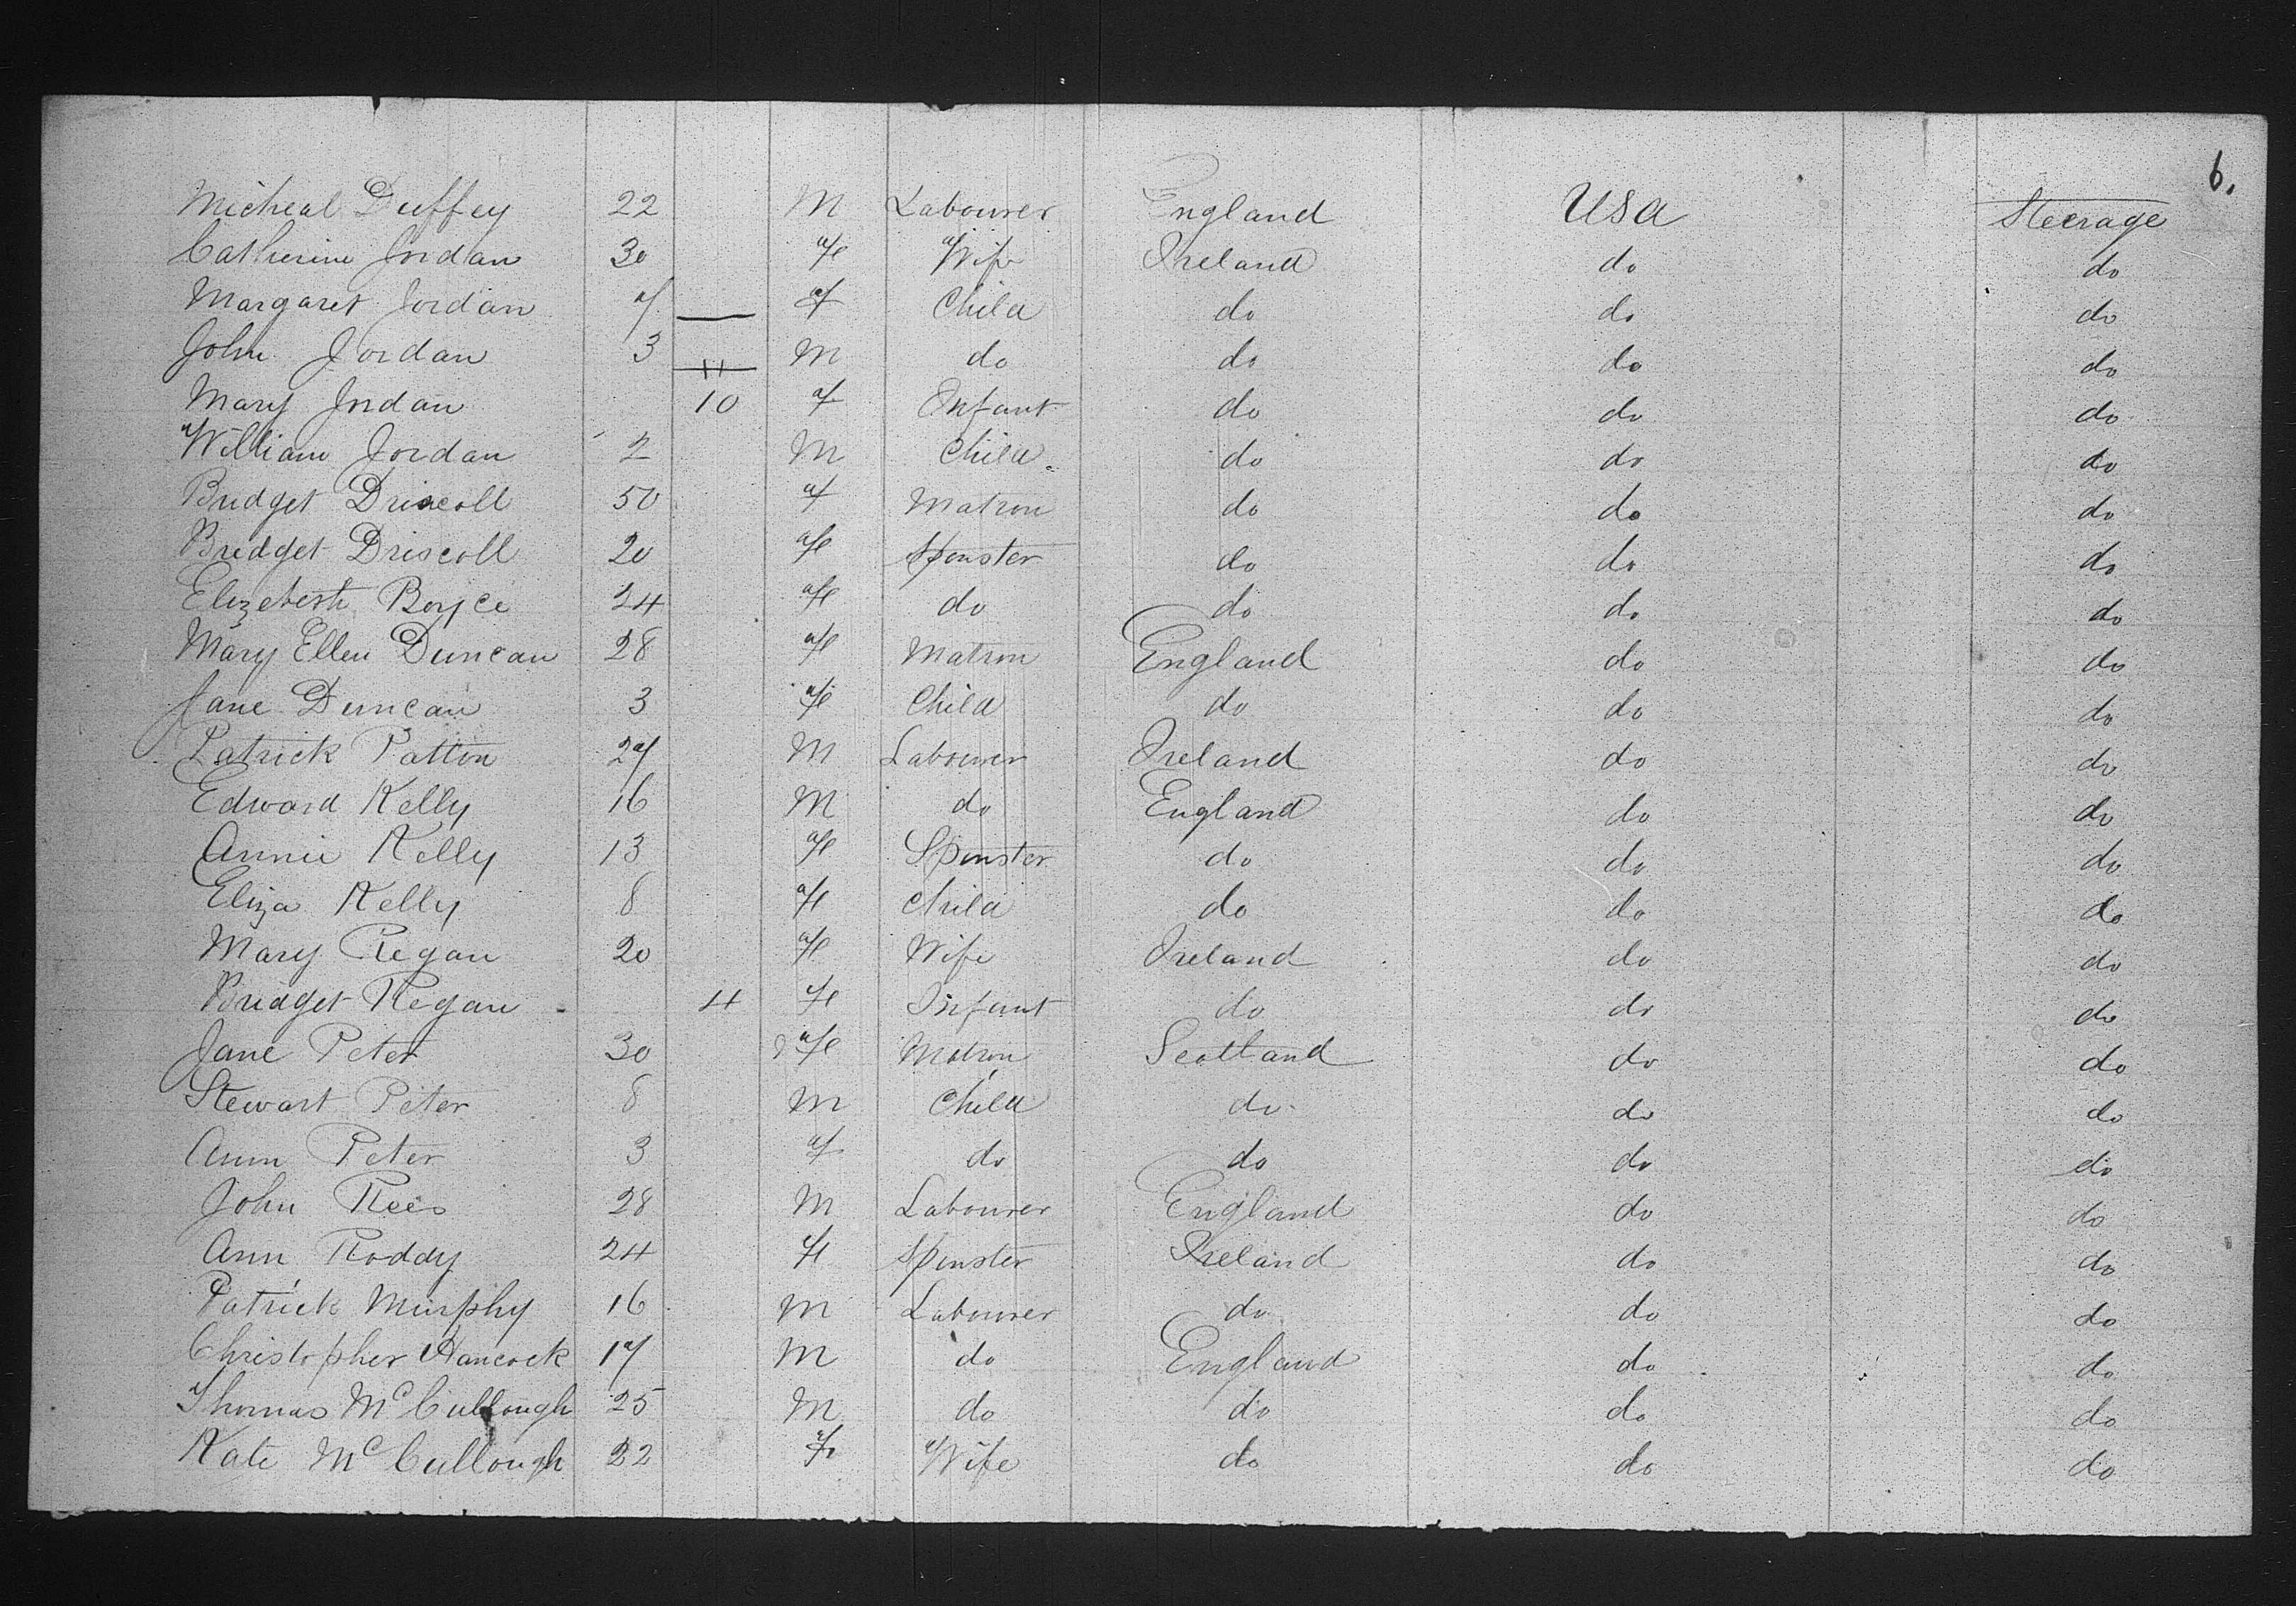 6.
Micheal Duffey 22 M Labourer England USA Steerage
Catherine Jordan 30 F Wife Ireland do do
Margaret Jordan 7 F Child do do do
John Jordan 3 M do do do do
Mary Jordan 10 F Infant do do do
William Jordan 2 M Child do do do
Bridget Driscoll 50 F Matron do do do
Bridget Driscoll 20 F Spinster do do do
Elizebeth Boyce 24 F do do do do
Mary Ellen Duncan 28 F Matron England do do
Jane Duncan 3 F Child do do do
Patrick Patton 27 M Labourer Ireland do do
Edward Kelly 16 M do England do do
Annie Kelly 13 F Spinster do do do
Eliza Kelly 8 F Child do do do
Mary Regan 20 F Wife Ireland do do
Bridget Regan 4 F Infant do do do
Jane Peter 30 F Matron Scotland do do
Stewart Peter 8 M Child do do do
Ann Peter 3 F do do do do
John Rees 28 M Labourer England do do
Ann Roddy 24 F Spinster Ireland do do
Patrick Murphy 16 M Labourer do do do
Christopher Hancock 17 M do England do do
Thomas McCullough 25 M do do do do
Kate McCullough 22 F Wife do do do